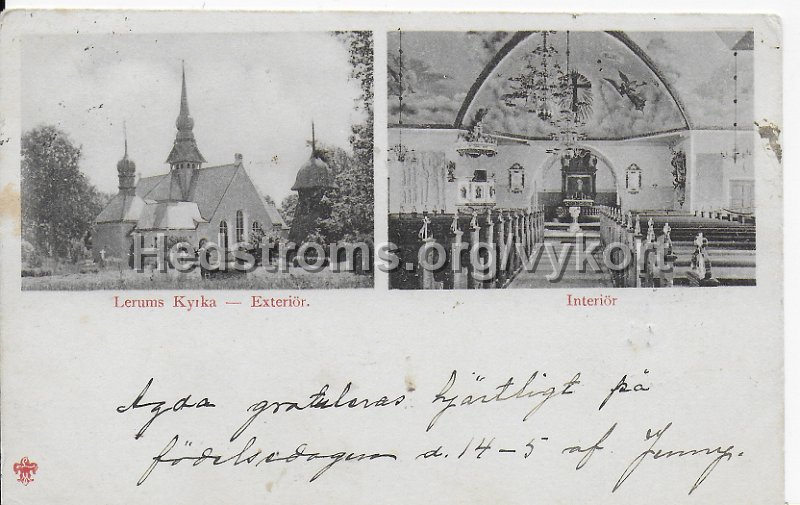 Hedstroms.org/vykort
Lerums Kyrka — Exteriör.
Interiör
Agda gratuleras hjärtligt på
födelsedagen d. 14-5 af Jenny.